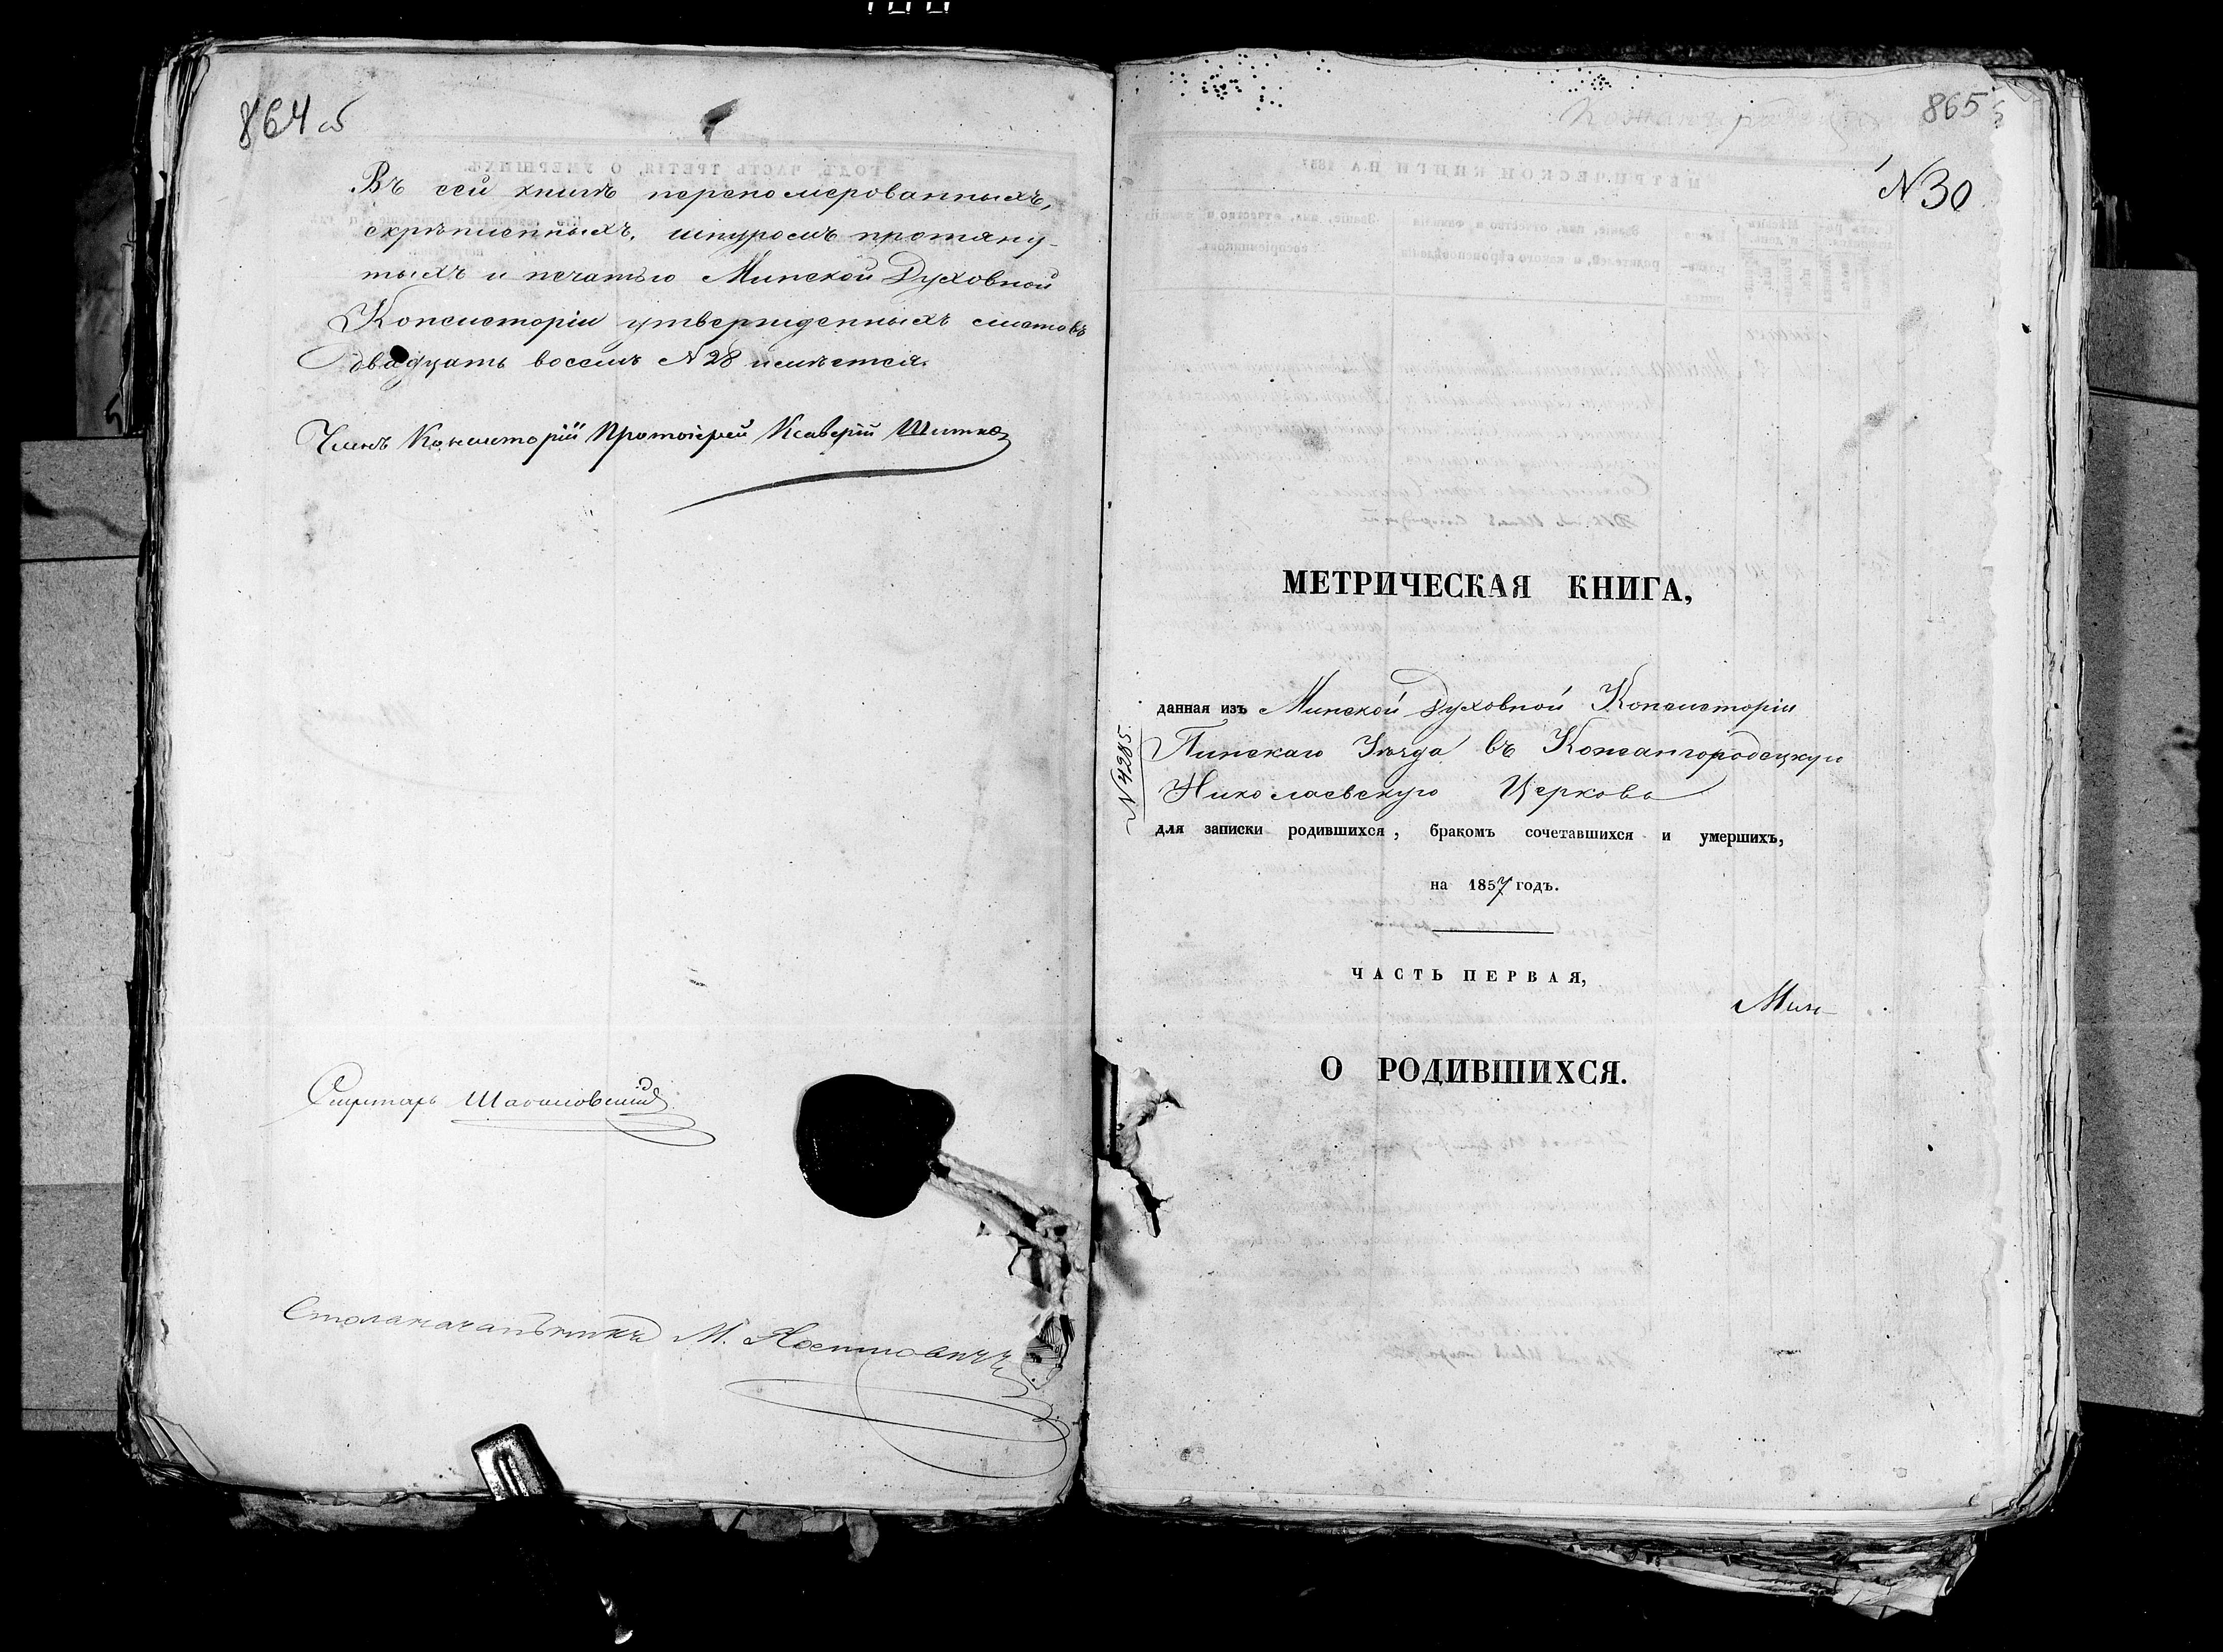 864 об
Въ сей книгѣ переномерованныхъ,
скрѣпленныхъ, шнуромъ протяну-
тыхъ и печатью Минской Духовной
Консисторіи утвержденныхъ листовъ
двадцать восемь № 28 имѣется.
Членъ Консисторіи Протоіерей Ксаверій
Секретарь
Столоначальникъ М.
865
№ 30
МЕТРИЧЕСКАЯ КНИГА,
данная изъ Минской Духовной Консисторіи
Пинскаго Уѣзда въ Кожангородецкую
Николаевскую Церковь
№ 4285.
для записки родившихся, бракомъ сочетавшихся и умершихъ,
на 1857 годъ.
ЧАСТЬ ПЕРВАЯ,
Мин-
О РОДИВШИХСЯ.